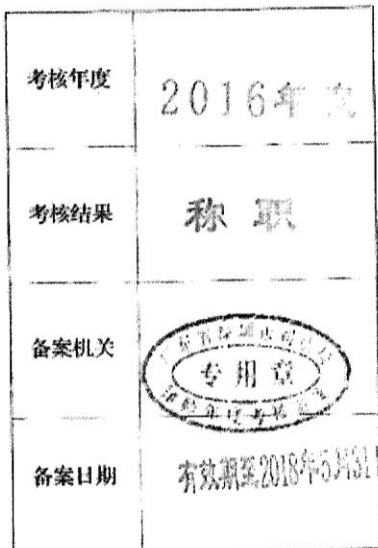 考核年度
2016年度
考核结果
称职
备案机关
专用章
备案日期
有效期至2018年5月31